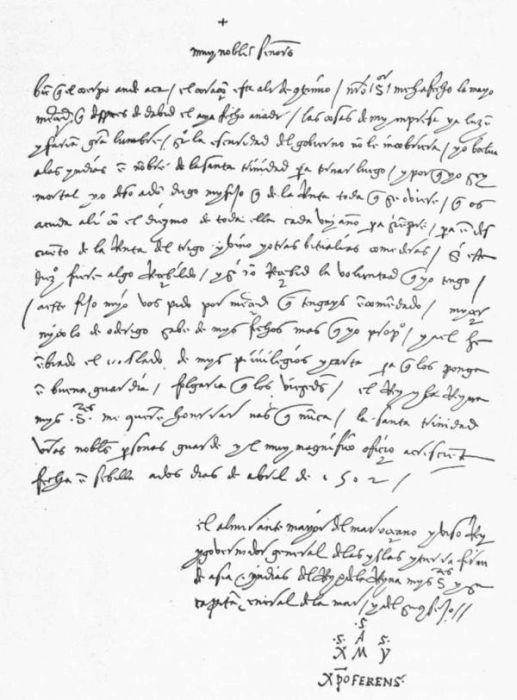 +
muy nobles señores
bien q̃ el cuerpo ande aca / el coraçõ esta ali de cõtino / nr̃o S.or me ha fecho la mayor
merçed q̃ despues de dabid el aya fecho a nadi / las cosas de my inpresa ya luzẽ
y fariã grã lumbre / si la escuridad del gobierno nõ le incobriera / yo bolvo
a las yndias ẽ nõbre de la santa trinidad pª tornar luego / y porq̃ yo soy
mortal yo dexo a dõ diego my fijo q̃ de la Renta toda q̃ se oviere q̃ os
acuda ali cõ el diezmo de toda ella cada un año pª siẽpre / pª ẽ des
cuẽto de la Renta del trigo y bino y otras bitualias comederas / si este
diezº fuere algo Reçebildo / y si nõ Reçebid la voluntad q̃ yo tengo /
/ a este fijo myo vos pido por merçed q̃ tengays ẽcomẽdado / miçer
nicolo de oderigo sabe de mys fechos mas q̃ yo propº / y a el he
ẽbiado el treslado de mys privilegios y cartas pª q̃ los ponga
ẽ buena guardia / folgaria q̃ los viesedes / el Rey y la Reyna
mys Sres me quierẽ honrrar mas q̃ nũca / la santa trinidad
vr̃as nobles p̃sonas guarde y el muy magnifico ofiçio acresciẽte
fecha ẽ sebilla a dos dias de abril de 1502 /
el almirante mayor del mar oçeano y viso Rey
y governador general de las yslas y tierra firme
de asia e yndias del Rey e de la Reyna mys Sres y su
capitã general de la mar / y del su cõsejo //
.S.
.S. A S.
X M Y
Xp̃o FERENS